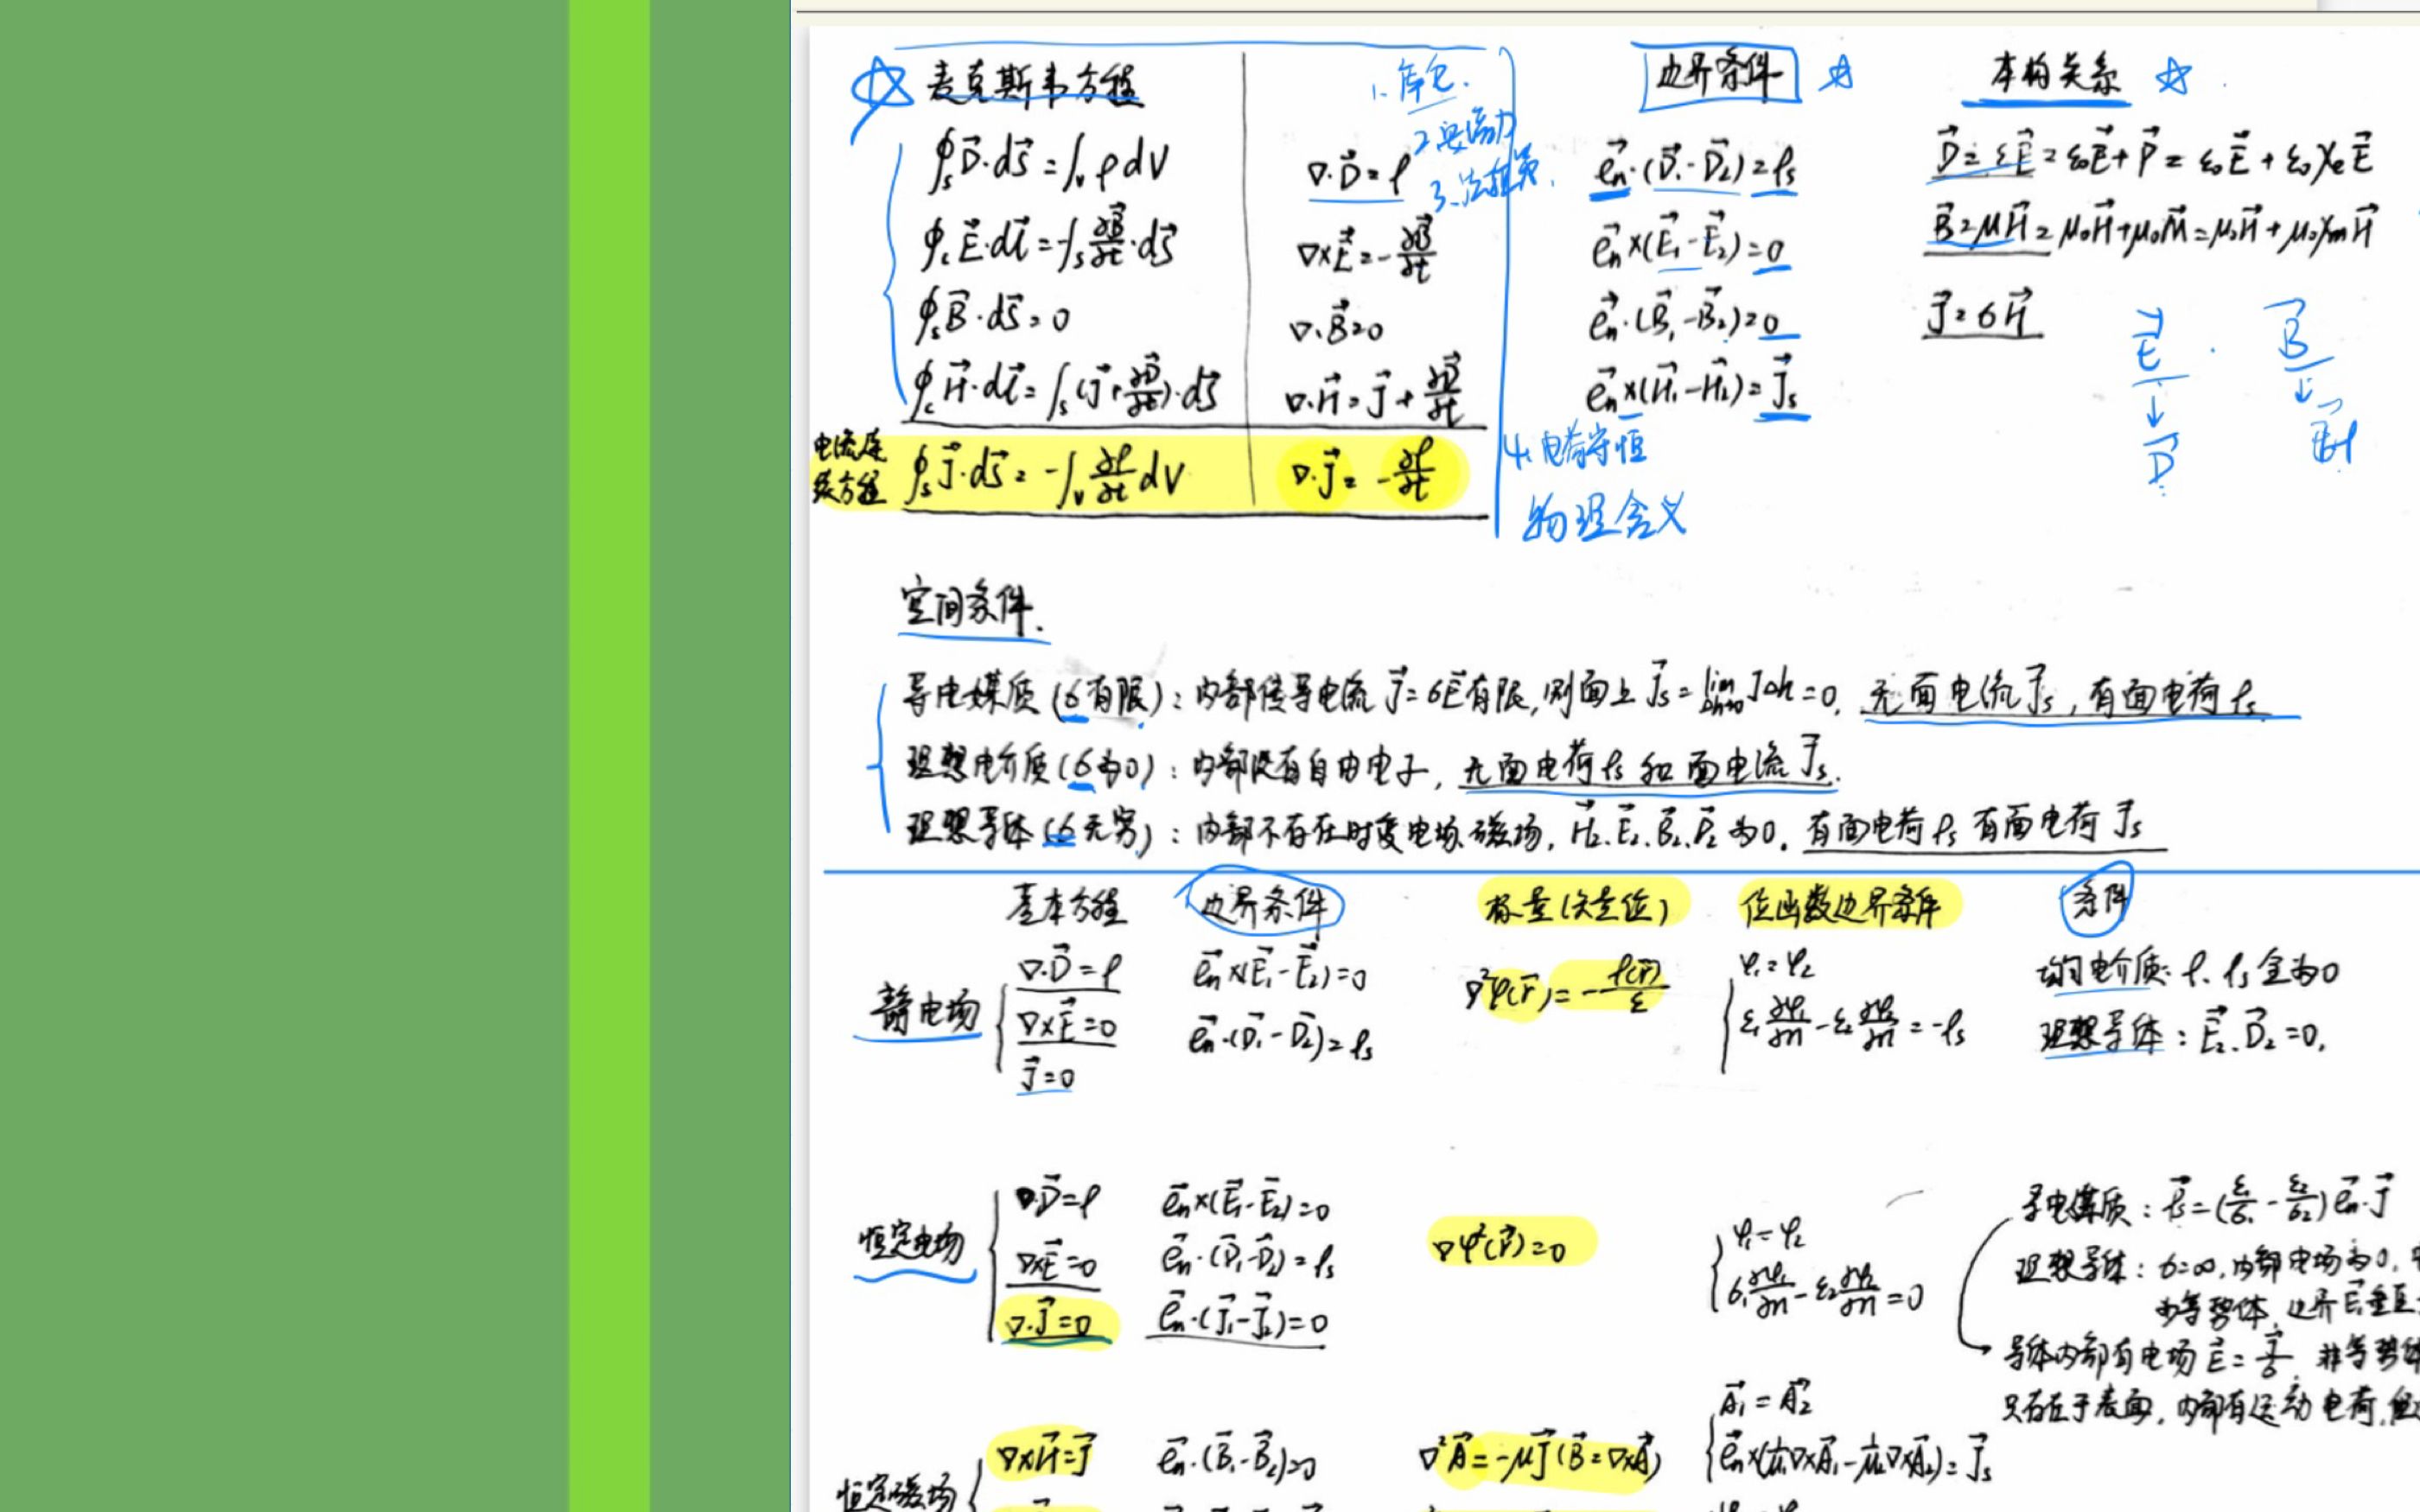 麦克斯韦方程
∮_s D⃗·dS⃗ = ∫_v ρdV
∮_c E⃗·dl⃗ = -∫_s ∂B⃗/∂t·dS⃗
∮_s B⃗·dS⃗ = 0
∮_c H⃗·dl⃗ = ∫_s (J⃗+∂D⃗/∂t)·dS⃗
电流连续方程 ∮_s J⃗·dS⃗ = -∫_v ∂ρ/∂t dV
∇·D⃗ = ρ
∇×E⃗ = -∂B⃗/∂t
∇·B⃗ = 0
∇·H⃗ = J⃗ + ∂D⃗/∂t
∇·J⃗ = -∂ρ/∂t
1.库仑.
2.
3.
4.电荷守恒
物理含义
边界条件
e⃗n·(D⃗₁-D⃗₂) = ρs
e⃗n×(E⃗₁-E⃗₂) = 0
e⃗n·(B⃗₁-B⃗₂) = 0
e⃗n×(H⃗₁-H⃗₂) = J⃗s
本构关系
D⃗ = εE⃗ = ε₀E⃗+P⃗ = ε₀E⃗ + ε₀χeE⃗
B⃗ = μH⃗ = μ₀H⃗+μ₀M⃗ = μ₀H⃗ + μ₀χmH⃗
J⃗ = σH⃗
E⃗ · B⃗
↓ ↓
D⃗ H⃗
空间条件.
导电媒质(σ有限): 内部传导电流 J⃗=σE⃗有限,则面上 J⃗s = lim Δh→0 JΔh = 0, 无面电流J⃗s, 有面电荷ρs
理想电介质(σ为0): 内部没有自由电子, 无面电荷ρs 和 面电流 J⃗s.
理想导体(σ无穷): 内部不存在时变电场.磁场, H⃗₂.E⃗₂.B⃗₂.D⃗₂ 为0. 有面电荷ρs 有面电荷 J⃗s
基本方程 边界条件 标量(矢量位) 位函数边界条件 条件
静电场
∇·D⃗ = ρ
∇×E⃗ = 0
J⃗ = 0
e⃗n×(E⃗₁-E⃗₂) = 0
e⃗n·(D⃗₁-D⃗₂) = ρs
∇²φ(r⃗) = -ρ(r⃗)/ε
φ₁ = φ₂
ε₁∂φ₁/∂n - ε₂∂φ₂/∂n = -ρs
均匀电介质: ρ. ρs 全为0
理想导体: E⃗₂.D⃗₂ = 0.
恒定电场
∇·D⃗ = ρ
∇×E⃗ = 0
∇·J⃗ = 0
e⃗n×(E⃗₁-E⃗₂) = 0
e⃗n·(D⃗₁-D⃗₂) = ρs
e⃗n·(J⃗₁-J⃗₂) = 0
∇φ²(r⃗) = 0
φ₁ = φ₂
σ₁∂φ₁/∂n - ε₂∂φ₂/∂n = 0
导电媒质: ρs = (ε₁/σ₁ - ε₂/σ₂) e⃗n·J⃗
理想导体: σ=∞, 内部电场为0,
为等势体, 边界E⃗垂直
导体内部有电场 E⃗ = J⃗/σ, 非等势体
只存在于表面, 内部有运动电荷,但
恒定磁场
∇×H⃗ = J⃗
e⃗n·(B⃗₁-B⃗₂) = 0
∇²A⃗ = -μJ⃗ (B⃗ = ∇×A⃗)
A⃗₁ = A⃗₂
e⃗n×(1/μ₁∇×A⃗₁ - 1/μ₂∇×A⃗₂) = J⃗s